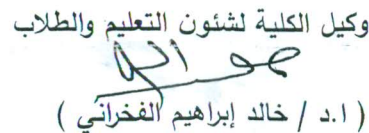 وكيل الكلية لشئون التعليم والطلاب
( ا.د / خالد إبراهيم الفخراني )